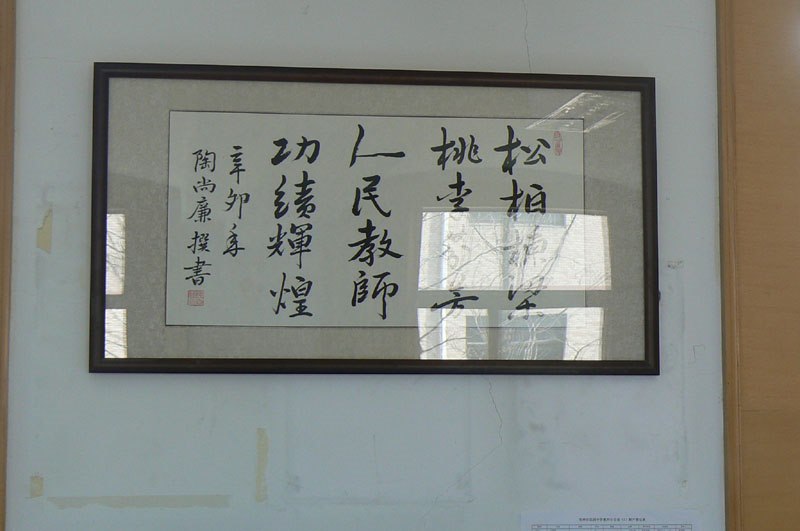 松柏棟梁
桃李芳
人民教師
功績輝煌
辛卯年
陶尚廉撰書